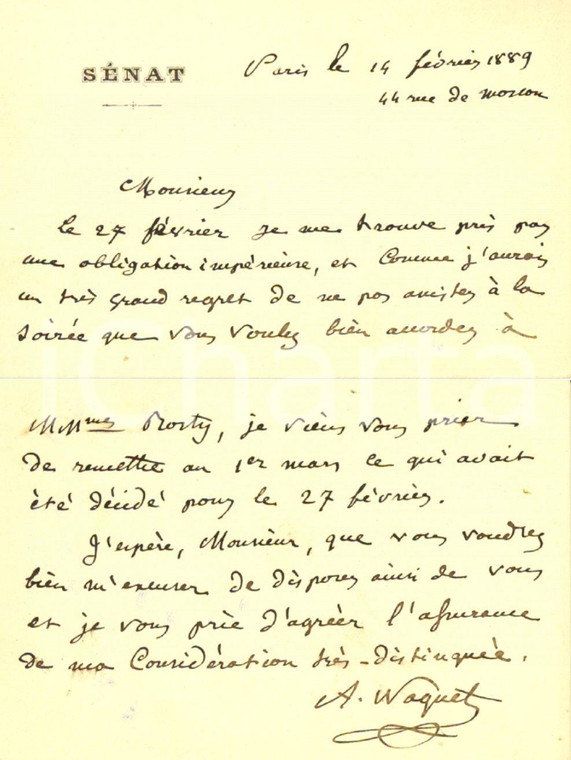 SÉNAT
Paris le 14 février 1889
44 rue de moscou
Monsieur
Le 27 février je me trouve pris par
une obligation impérieuse, et comme j'aurais
un très grand regret de ne pas assister à la
soirée que vous voulez bien accorder à
MMmes Rosty, je viens vous prier
de remettre au 1er mars ce qui avait
été décidé pour le 27 février.
J'espère, Monsieur, que vous voudrez
bien m'excuser de disposer ainsi de vous
et je vous prie d'agréer l'assurance
de ma Considération très-distinguée.
A. Naquet
iCharta